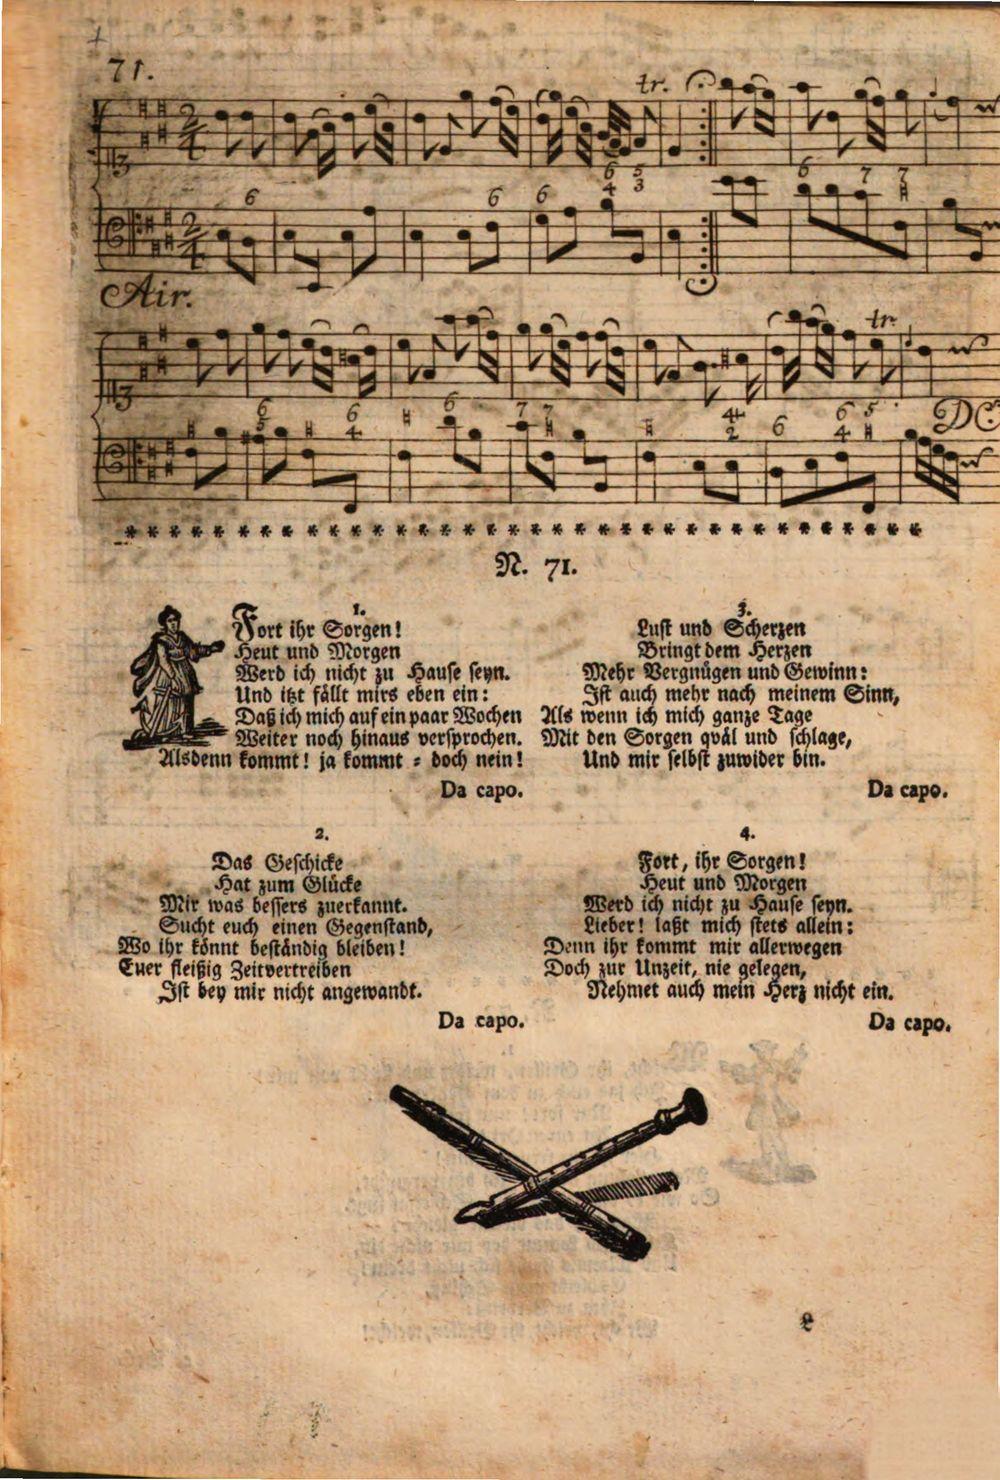 71.
tr.
6 6 6 6 5 6 7 7
4 3
Air.
tr.
6 6 6 7 7 4 6 6 5
5 4 2 4
DC
N. 71.
1.
Fort ihr Sorgen!
Heut und Morgen
Werd ich nicht zu Hause seyn.
Und itzt fällt mirs eben ein:
Daß ich mich auf ein paar Wochen
Weiter noch hinaus versprochen.
Alsdenn kommt! ja kommt = doch nein!
Da capo.
2.
Das Geschicke
Hat zum Glücke
Mir was bessers zuerkannt.
Sucht euch einen Gegenstand,
Wo ihr könnt beständig bleiben!
Euer fleißig Zeitvertreiben
Ist bey mir nicht angewandt.
Da capo.
3.
Lust und Scherzen
Bringt dem Herzen
Mehr Vergnügen und Gewinn:
Ist auch mehr nach meinem Sinn,
Als wenn ich mich ganze Tage
Mit den Sorgen qväl und schlage,
Und mir selbst zuwider bin.
Da capo.
4.
Fort, ihr Sorgen!
Heut und Morgen
Werd ich nicht zu Hause seyn.
Lieber! laßt mich stets allein:
Denn ihr kommt mir allerwegen
Doch zur Unzeit, nie gelegen,
Nehmet auch mein Herz nicht ein.
Da capo.